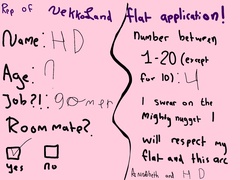 Rep of NekkoLand flat application!
Name: HD
Age: 7
Job?!: gamer
Roommate?
yes no
Number between
1-20 (except
for 10): 4
I swear on the
Mighty nugget I
will respect my
flat and this arc
and HD